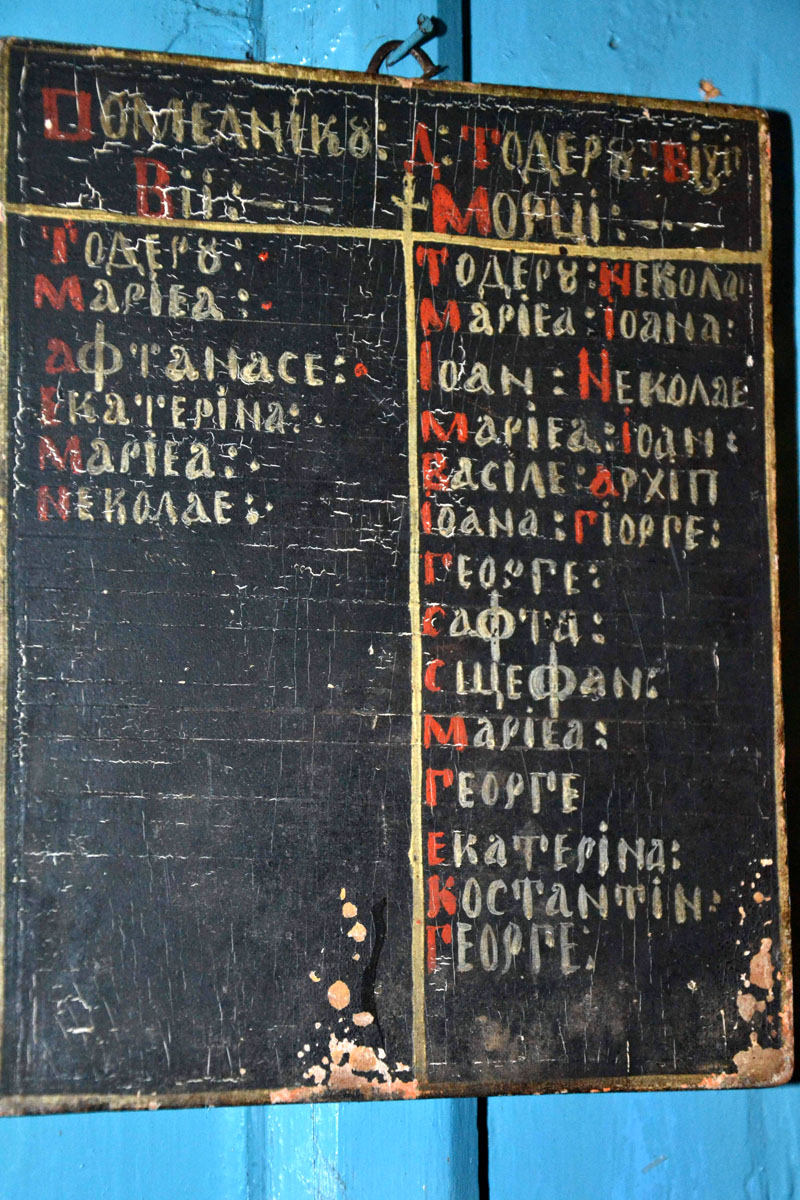 Помѣанікꙋ: Д: Тодерꙋ:
Віі: Морці:
Тодерꙋ:
Маріеа:
Афтанасе:
Екатеріна:
Маріеа:
Неколае:
Тодерꙋ: Неколаі
Маріеа: Іоана:
Іоан: Неколае
Маріеа: Іоан:
Васіле: Архіп
Іоана: Гіорге:
Георге:
Сафта:
Сщефан:
Маріеа:
Георге
Екатеріна:
Костантін:
Георге: